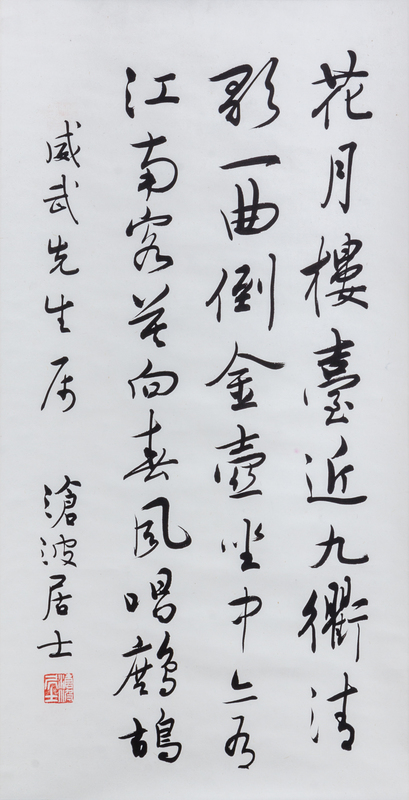 花月樓臺近九衢清
歌一曲倒金壺坐中亦有
江南客莫向春風唱鷓鴣
威武先生属 滄波居士